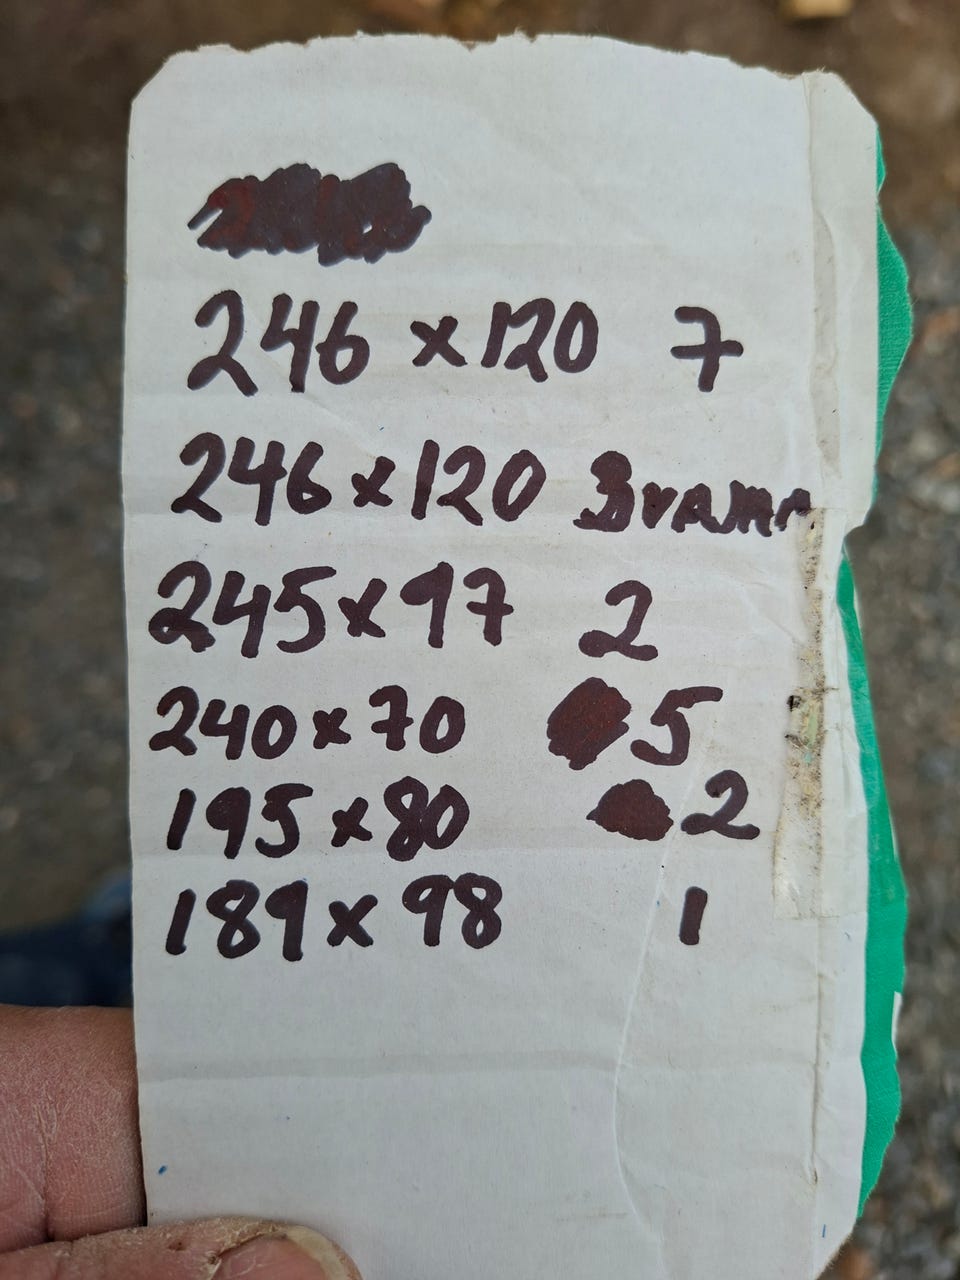 246 x 120 7
246 x 120
245 x 97 2
240 x 70 5
195 x 80 2
189 x 98 1